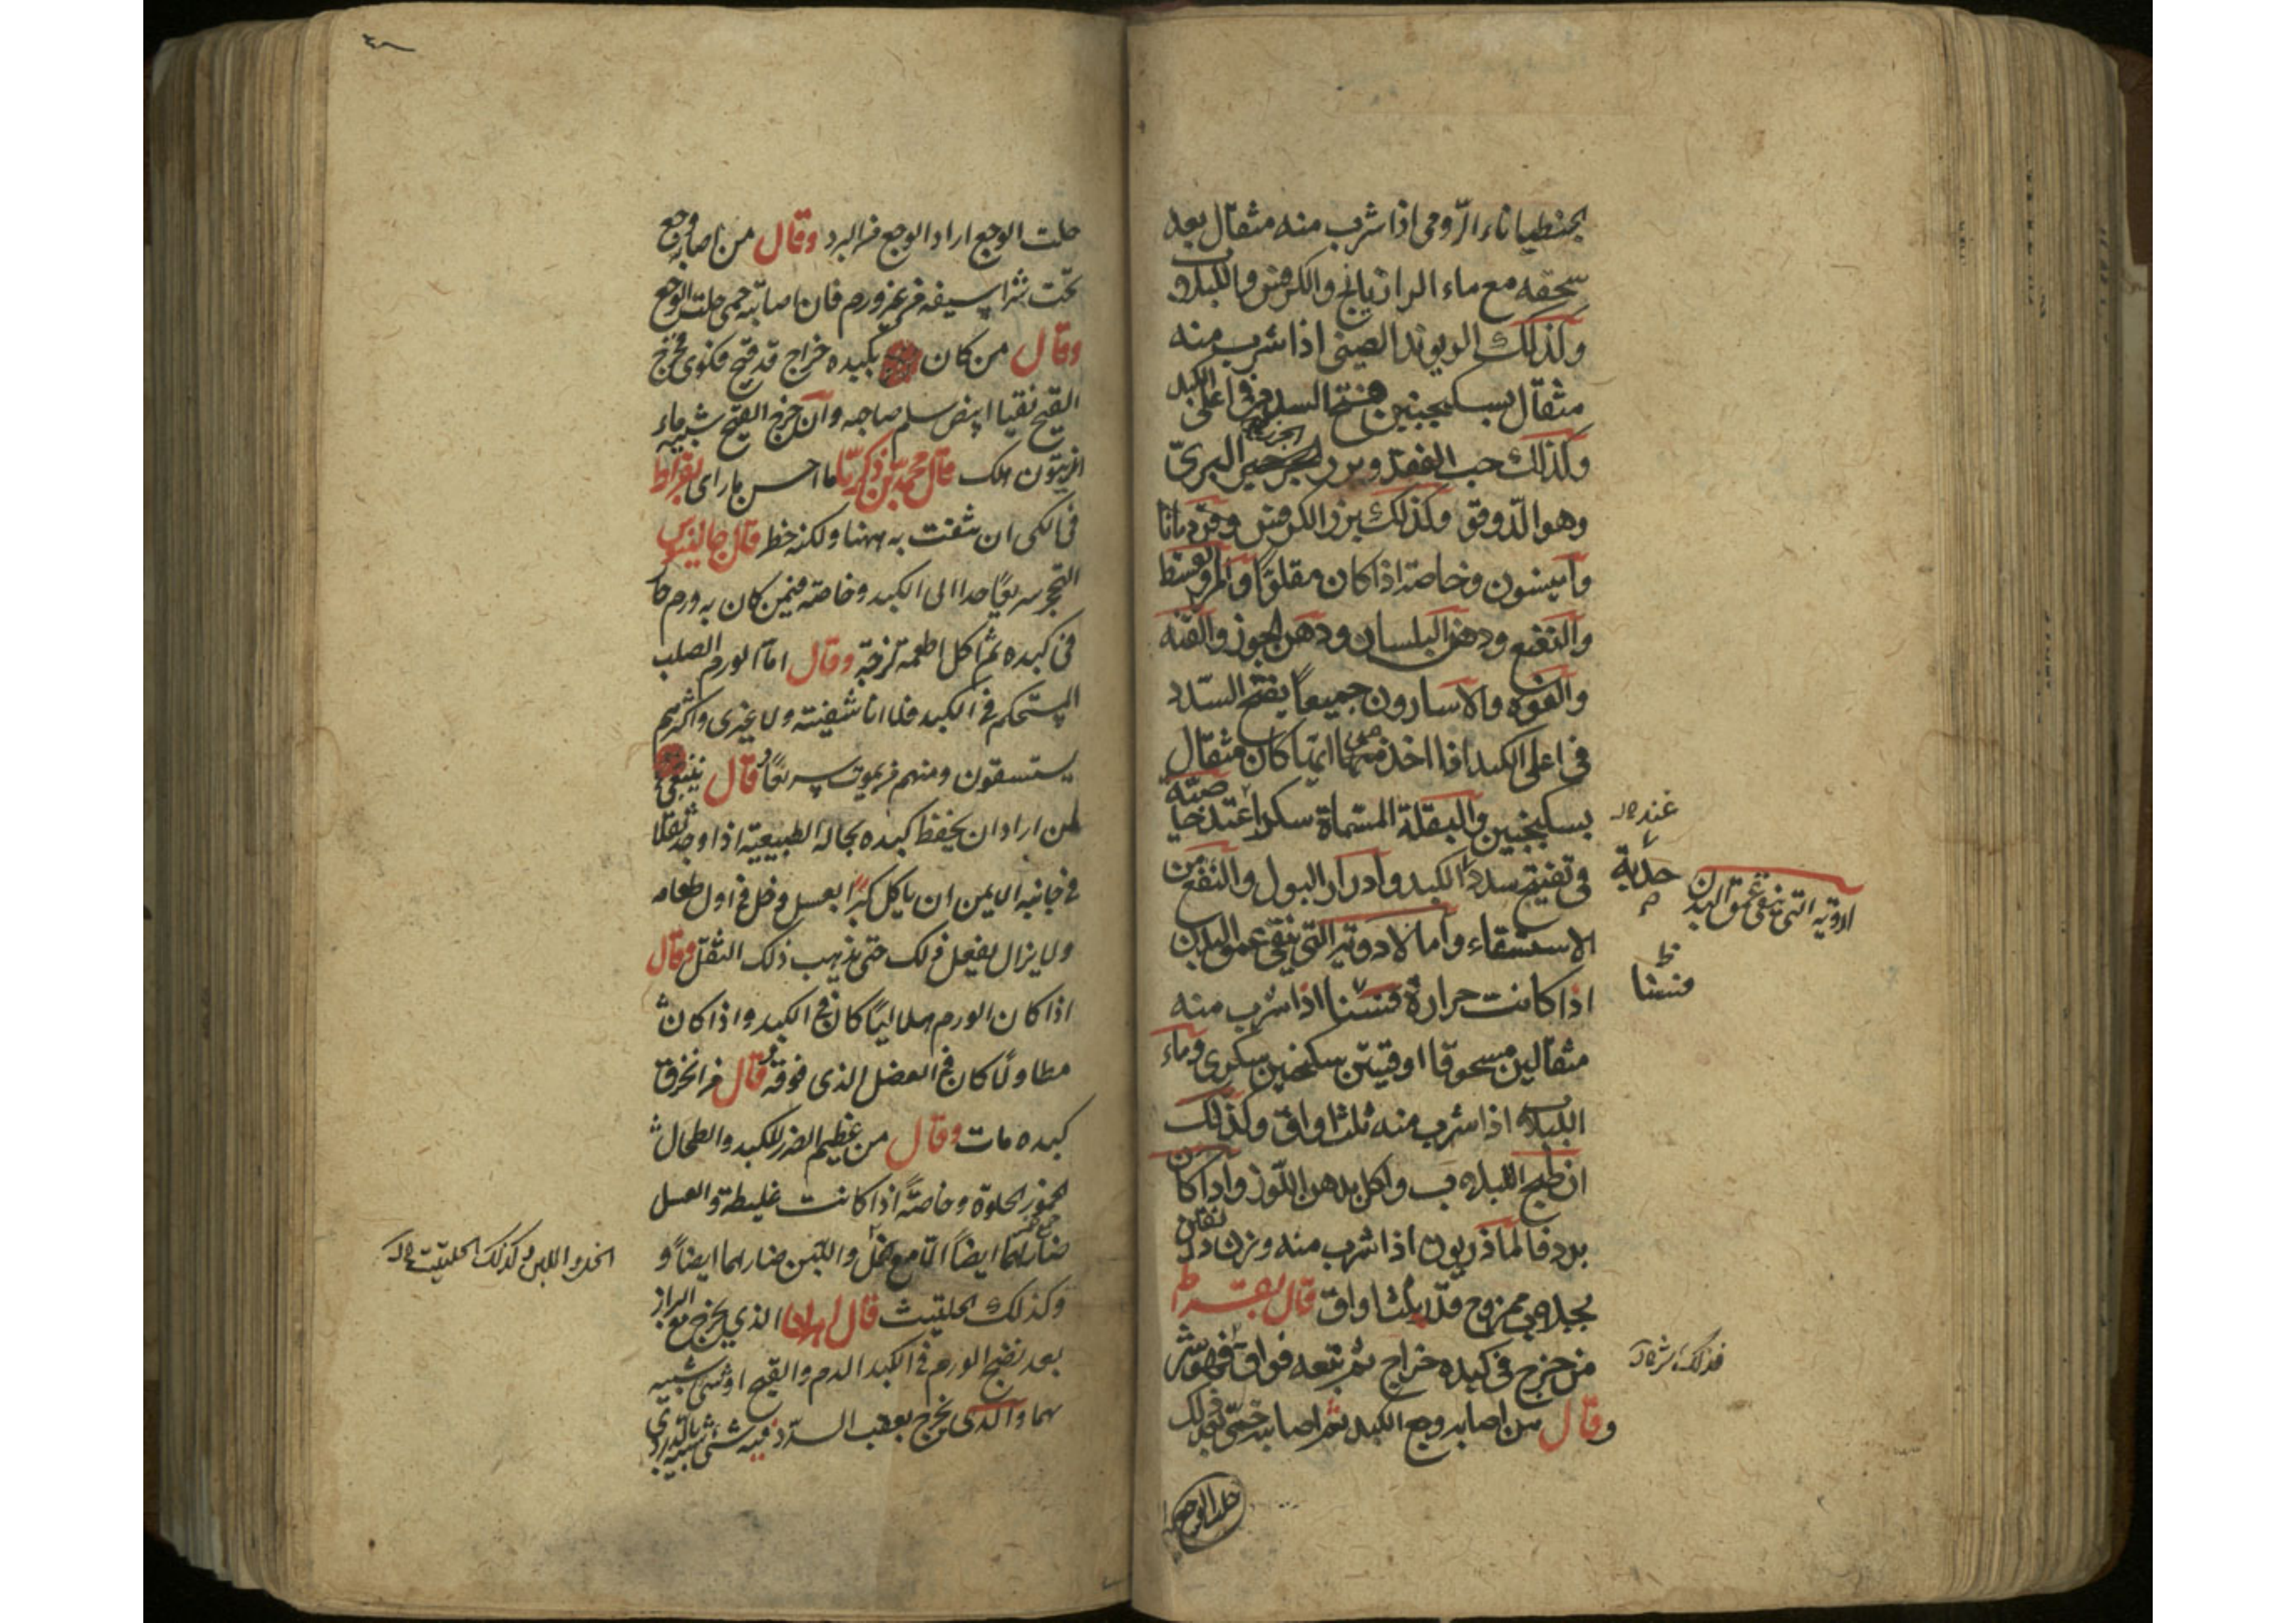 الجنطيانا الرومي اذا شرب منه مثقال بعد
سحقه مع ماء الرازيانج والكرفس واللبلاب
وكذلك الريوند الصيني اذا شرب منه
مثقال بسكنجبين فتح السدد في اعلى الكبد
وكذلك حب الفقد وبزر الجزر البري
وهو الدوقو وكذلك بزر الكرفس وقردمانا
وانيسون وخاصة اذا كان مقلوا والمر والقسط
والنعنع ودهن البلسان ودهن الجوز والقنه
والفوه والاسارون جميعا يفتح السدد
في اعلى الكبد اذا اخذ منها ايما كان مثقال
بسكنجبين والبقلة المسماة سكرا عند خاصية
في تفتيح سدد الكبد وادرار البول والنفع من
الاستسقاء واما الادوية التي تنقي عمق البدن
اذا كانت حرارة فسنا اذا شرب منه
مثقالين مسحوقا اوقيتين سكنجبين سكرى وماء
اللبلاب اذا شرب منه ثلث اواق وكذلك
ان طبخ اللبلاب واكل بدهن اللوز واذا كان
برد فالماذريون اذا شرب منه وزن دانقين
بجلاب ممزوج قدر ثلث اواق قال بقراط
من خرج في كبده خراج ثم تبعه فواق فهو شر
وقال من اصابه وجع الكبد ثم اصابته حمى فى ذلك
حلت الوجع
عنده
حدبة
ادوية التي تنقي عمق البدن
فسنا
فذلك شر
حلت الوجع اراد الوجع من البرد وقال من اصابه وجع
تحت شراسيفه من غير ورم فان اصابته حمى حلت الوجع
وقال من كان بكبده خراج قد قيح فكوى فخرج
القيح نقيا ابيض سلم صاحبه وان خرج القيح شبيه بماء
الزيتون هلك قال محمد بن زكريا ما احسن ما راى بقراط
في الكى ان شفت به ههنا ولكنه خطر قال جالينوس
في كبده ثم اكل اطعمة لزجة وقال اما الورم الصلب
المستحكم في الكبد فلا انا شفيته ولا غيرى واكثرهم
يستسقون ومنهم من يموت سريعا وقال ينبغي
لمن اراد ان يحفظ كبده بحاله الطبيعية اذا وجد ثقلا
في جانبه الايمن ان ياكل كبرا بعسل وخل في اول طعامه
ولا يزال يفعل ذلك حتى يذهب ذلك الثقل وقال
اذا كان الورم هلاليا كان في الكبد واذا كان
مطاولا كان في العضل الذى فوقه وقال من انخرق
كبده مات وقال من عظيم الضرر للكبد والطحال
الخمور الحلوة وخاصة اذا كانت غليظة والعسل
ضار لهما ايضا الا مع الخل واللبن ضار لهما ايضا و
وكذلك الحلتيت قال اهرن الذي يخرج مع البراز
بعد نضج الورم في الكبد الدم والقيح او شى شبيه
بهما والذى يخرج بعقب السدد فيه شئ شبيه بالدردى
الخل واللبن وكذلك الحلتيت